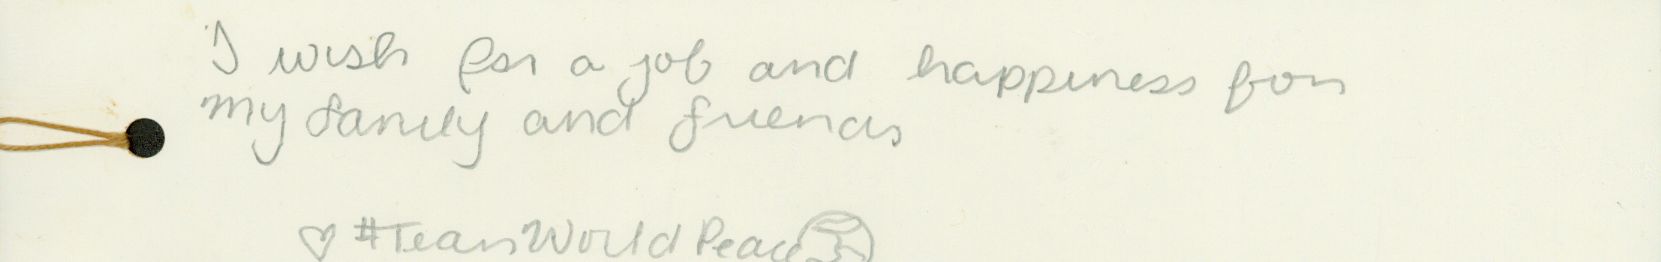 I wish for a job and happiness for
my family and friends
♡ #TeamWorldPeace